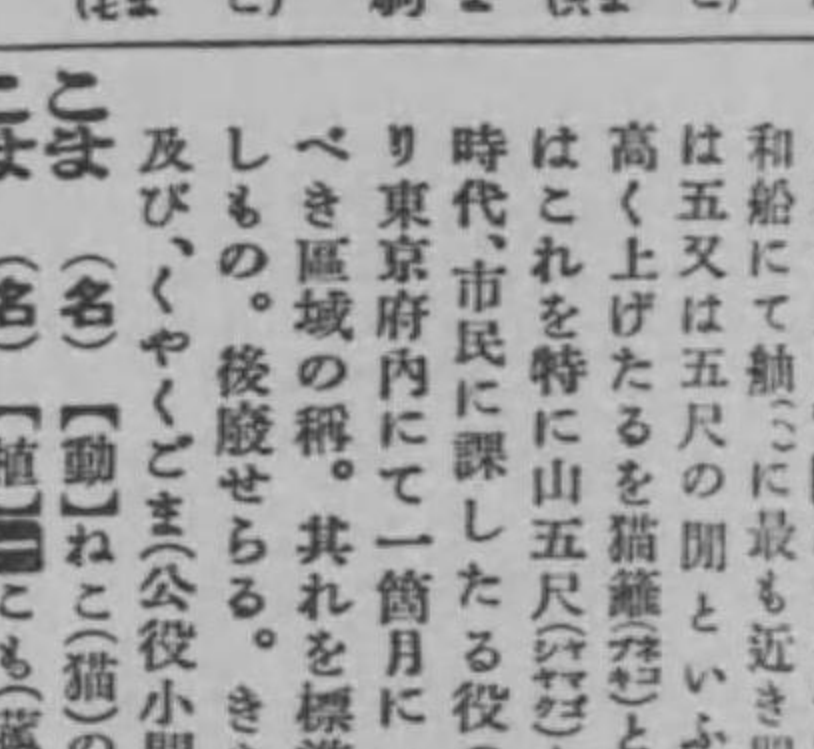 和船にて舳(こ)に最も近き
は五又は五尺の間といふ
高く上げたるを猫籬(ネコブキ)と
はこれを特に山五尺(シャマゴ)
時代、市民に課したる役
り東京府內にて一箇月に
べき區域の稱。其れを標準
しもの。後廢せらる。き
及び、くやくごま(公役小間
こま (名) 【動】ねこ(猫)の
こま (名) 【植】一こも(